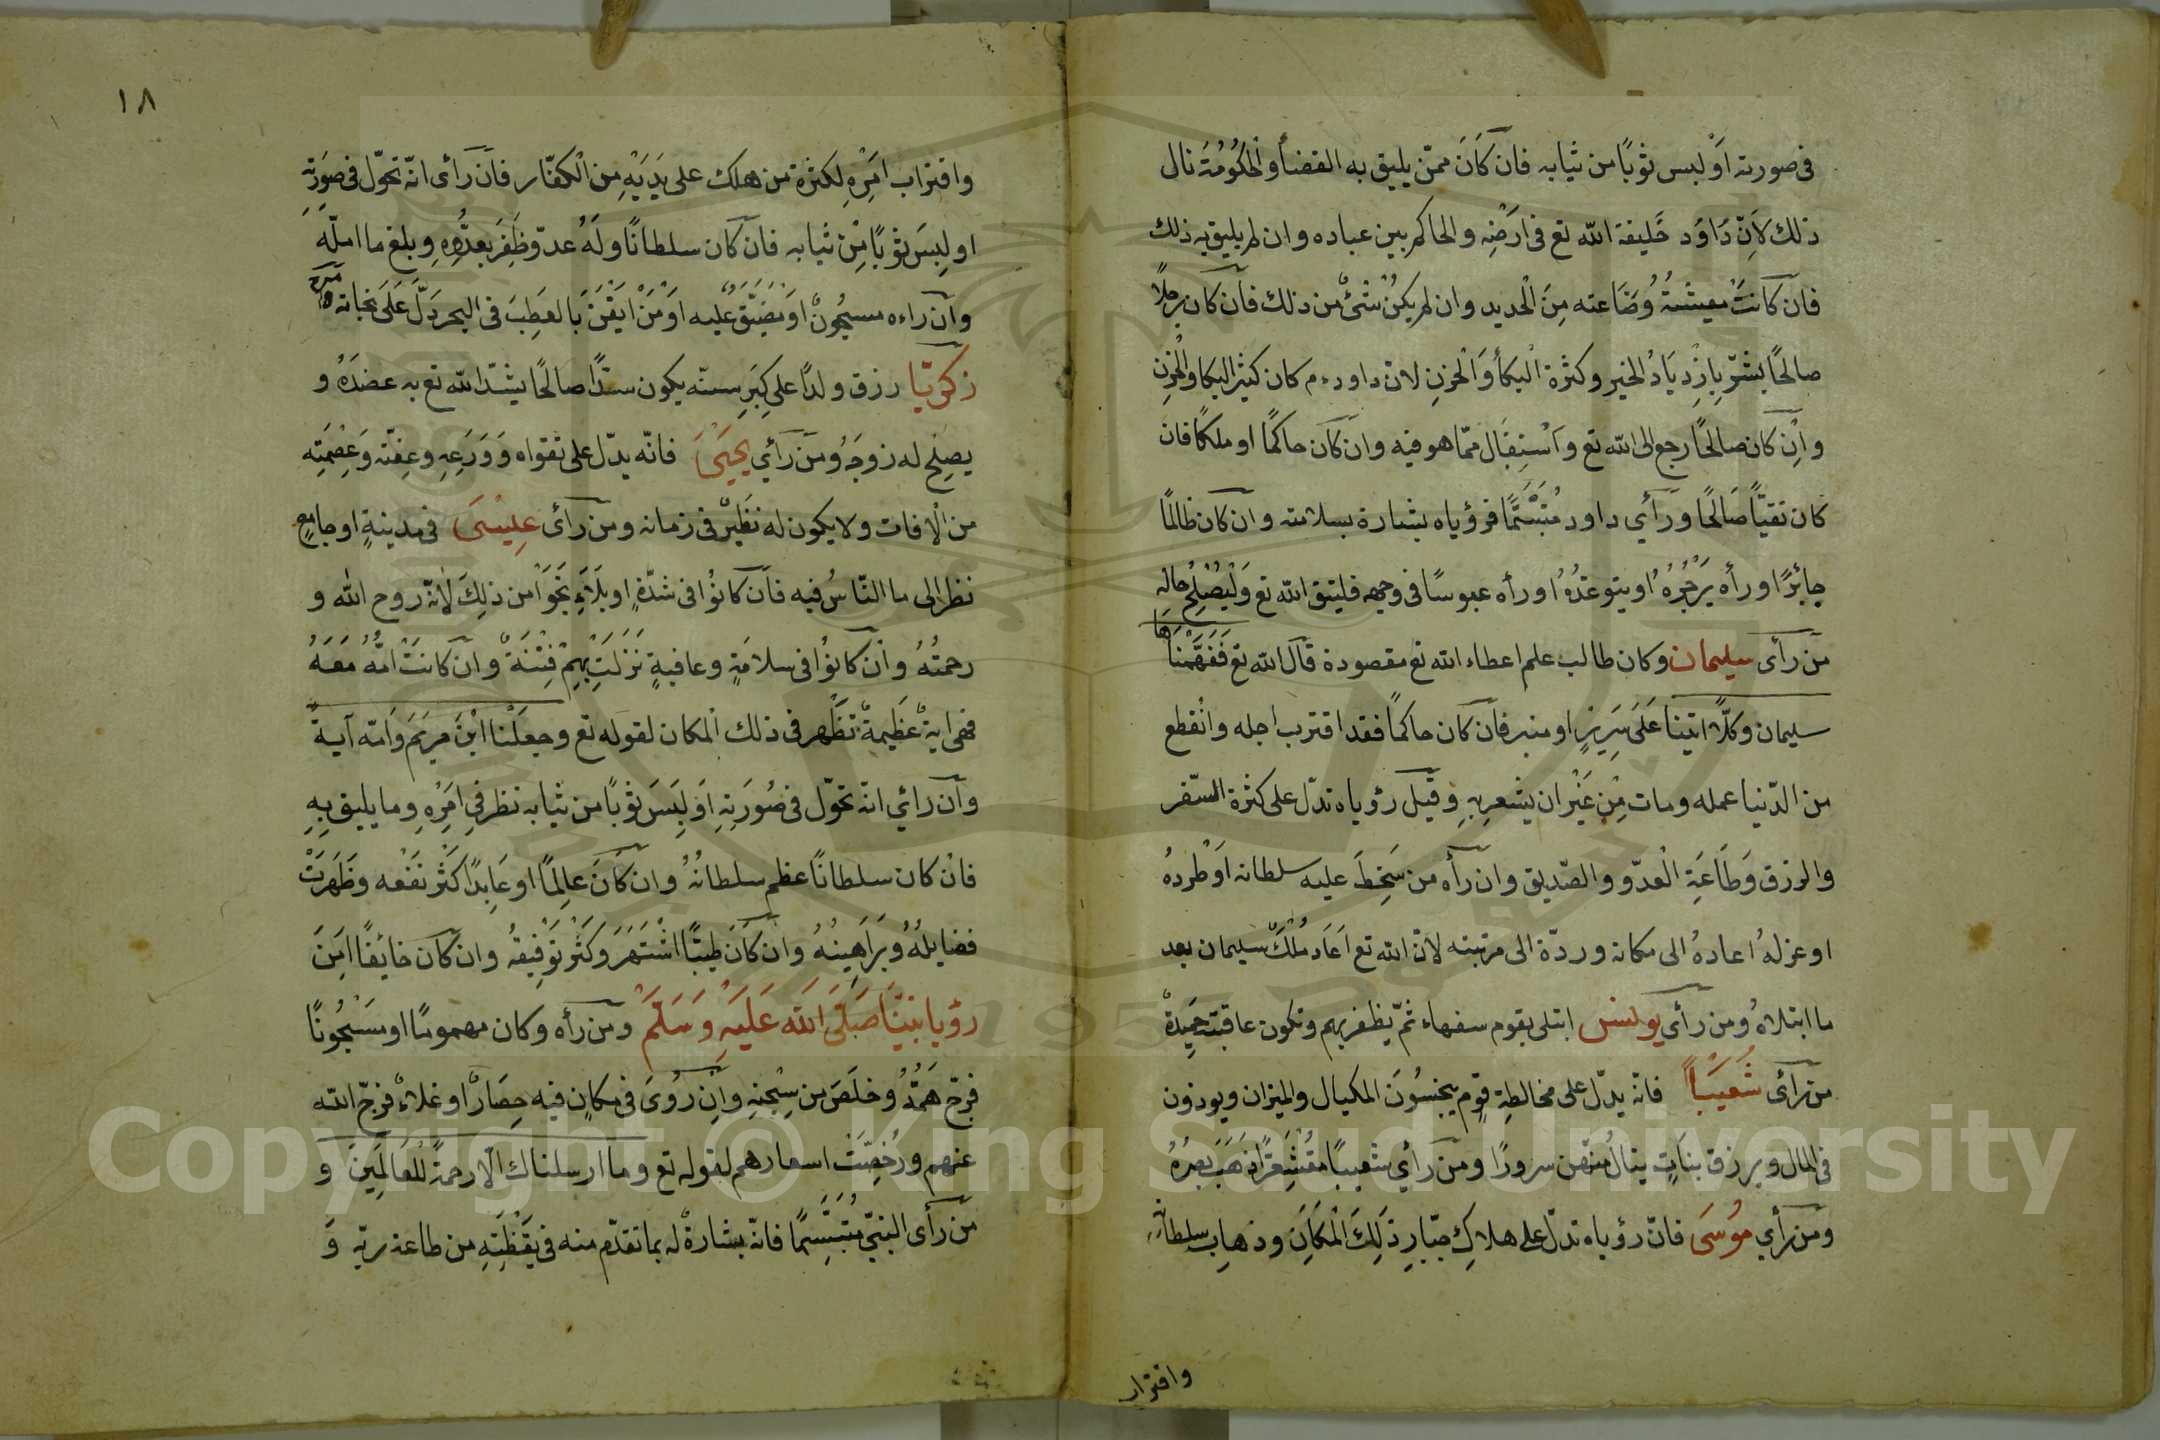 في صورته اَوْ لبس ثوبًا من ثيابه فان كَانَ ممّن يليق به القضأ والحكُومُةَ نال
ذلك لاَِنّ دَاوُد خَليفة اللّه تع فى اَرَضْه والحاكم بين عباده وان لم يليق به ذلك
فان كانتَْ معيشتهُ وُصنَاعته مِنَ الْحديد وان لم يكنْ شئْ من ذلك فان كان رجلاً
صالحًا بشّر بِازْديَادْ الخير وكثرة البكأ وَالْحزنِ لانّ داودءم كان كثير البكا والْحزنِ
وانِْ كان صالحًا رجع الى اللّه تع وَاسْتِقَال ممّا هو فيه وان كان حاكمًا او ملكًا فان
كان تقيّاً صَالحًا وَرَأي داود مُتبَسّمًا فرؤياه بشارة بسلامته وان كان ظالمًا
جائرًا وراْه يَزْجُرُهُ او يتوعدُهُ او رأه عبوسًا في وجهه فليتق اللّه تع وَلْيُصْلِحُ حاله
من رَأى سليمان وكان طالب علم اعطاء اللّه تع مقصودة قال اللّه تع فَفَهَّمْنَاهَا
سليمان وكلّا اتينا عَلَى سَرِيرٍ او منبر فان كان حاكمًا فقد اقترب اجله وانْقطع
من الدّنيا عمله ومات مِْن غَيْرِ ان يشعر بِهِ وقيل رؤياه تدّل على كثرة السّفر
والرزق وَطَاعَةِ الْعدّو والصّديق وان رأه من سَخِطَ عليه سلطانه اَوْطردهُ
او عزلهُ اعادهُ الى مكانه وردّة الى مرتبته لانّ اللّه تع اَعَاد مُلْكَ سليمان بعد
ما ابتلاهُ ومن رأى يونس ابتلى بقوم سفهاء ثمّ يظفر بهم وتكون عاقبته حَمِيدةْ
من رَأى شُعَيْبَاً فانّه يدّل على مخالطةِ قومٍ يبخسُونَ المكيال والميزان ويوذون
فى المال ويرزق بناتٍ ينالُ منهّن سرورًا ومن رَأي شعيبًا مقُشَعِرًّا ذهَبَ بصرُهُ
ومن رَأي مُوُسَى فانّ رؤياه تدّل على هلاكِ جبّارِ ذَلِكَ المْكَانِ وذهابِ سلطانهِ
واقترار
١٨
واقتراب امَْرِهِ لكثرة من هلك على يَدَيْهِ من الْكفّار فان رَأى انّه تحوّل فى صوَرتِهِ
او لبِسَ ثوبًا مِْن ثيابه فان كان سلطانًا ولَهُ عدوّ ظَفِرَ بعدُّوِهِ وبلغ ما املَّه
وان راءه مسجُونْ اَوْ مضَيَّق عُليه اوْ مَنْ اَيْقَنَ بَالعَطِبَ فى البحر دَلّ عَلَى نجاته ومن راى
زكريّا رزق ولدًا على كِبَرِ سنّه يكون سنَدًا صالحًا يشّد اللّه تع به عضدهُ و
يصلِح له زوجَهُ ومن رَأي يحيَىَ فانّه يدّل على تقواه وَوَرَعِهِ وعفّته وَعِصْمَتِه
من الاْفات ولا يكون له نظَيرْ فى زمانه ومن رأى عِيسَى فى مدينةٍ او جامعٍ
نظر الى ما النّاسُ فيه فان كانوُا فى شدّةٍ او بلاَءٍ نجَوْا من ذلِكَ لانّهْ روح اللّه و
رحمتُهُ وان كانوُا فى سلامَةٍ وعافيةٍ نَزَلَتْ بهِمْ فِتْنَةْ وان كانَتْ امُّهُ مَعَهُ
فهى ايةْ عَظِيمةْ تظْهر فى ذلك الْمكان لقوله تع وجعَلْنا ابْنَ مريَم وَامّه آيةً
وان رائي انّه تحوّل فى صُورَتِهِ اَوْ لبِسَ ثوْبًا من ثيابه نظر فِى امَْرِهِ وما يليق بِهِ
فان كان سلطانًا عظم سلطانُهُ وان كان عالِمًا او عَابِدًا كَثُر نَفعْه وظَهَرَتْ
فضايلهُ وُ بَرَاهِينُهُ وان كَانَ طبيبًا اشْتَهَرَ وَكَثُر توَْفِيقهُ وان كان خائفًا اَمِنَ
رؤيا نبيّنَا صَلىَّ اللّه عَليَهِْ وَسَلّمَْ ومن راه وكان مهمومًا او مسَجُْونًا
فرّج هَمّهُُ وخلَصَ من سِجْنِهِ وَانِْ رُوىَ فى مكانٍ فيه حِصَارْ او غلاءْ فرجّ اللّه
عنهم ورُخِصّتْ اسعارهم لقوله تع وما ارسلناك الّا رحمةً لْلعَالَمِينَ و
من رَأى النبىّ مُتبَسِّمًا فانّه بشارةْ له بما تقدّم منه في يَقَظْتِهِ من طاعة ربّهِ وَ